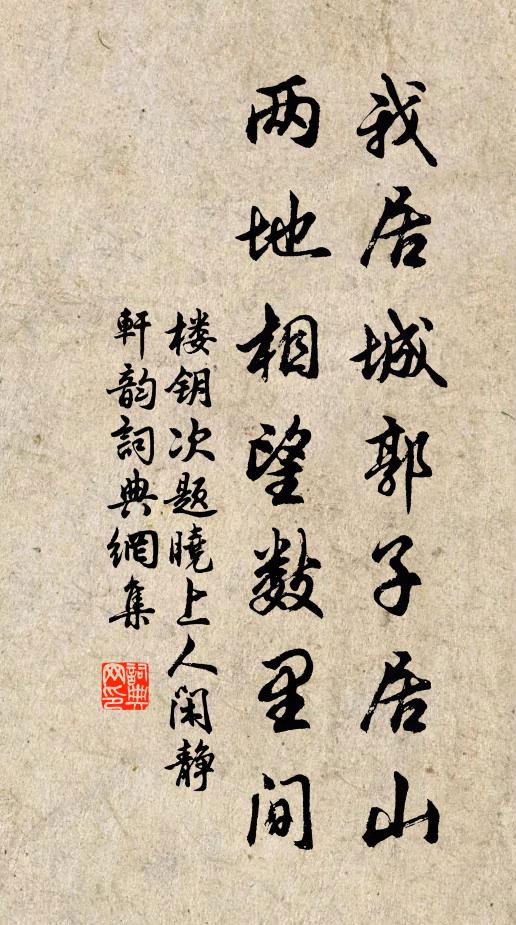 我居城郭子居山
两地相望数里间
楼钥次题晓上人闲静
軒韵詞典網集
詞典网印